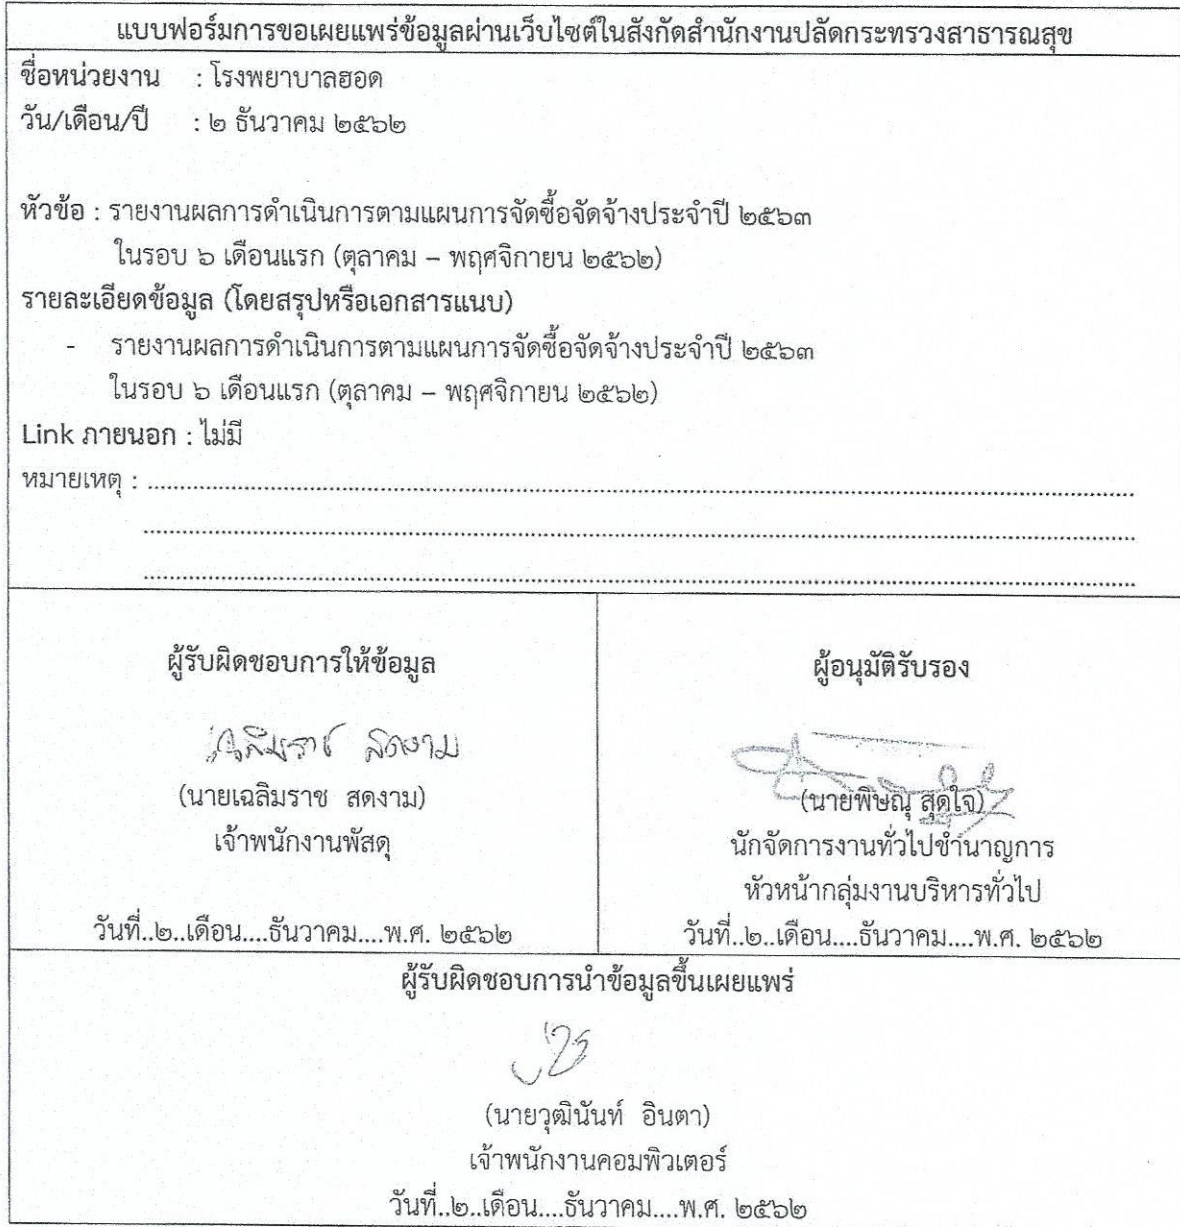 แบบฟอร์มการขอเผยแพร่ข้อมูลผ่านเว็บไซต์ในสังกัดสำนักงานปลัดกระทรวงสาธารณสุข
ชื่อหน่วยงาน : โรงพยาบาลฮอด
วัน/เดือน/ปี : ๒ ธันวาคม ๒๕๖๒
หัวข้อ : รายงานผลการดำเนินการตามแผนการจัดซื้อจัดจ้างประจำปี ๒๕๖๓
ในรอบ ๖ เดือนแรก (ตุลาคม – พฤศจิกายน ๒๕๖๒)
รายละเอียดข้อมูล (โดยสรุปหรือเอกสารแนบ)
- รายงานผลการดำเนินการตามแผนการจัดซื้อจัดจ้างประจำปี ๒๕๖๓
ในรอบ ๖ เดือนแรก (ตุลาคม – พฤศจิกายน ๒๕๖๒)
Link ภายนอก : ไม่มี
หมายเหตุ : ....................
ผู้รับผิดชอบการให้ข้อมูล
เฉลิมราช สดงาม
(นายเฉลิมราช สดงาม)
เจ้าพนักงานพัสดุ
วันที่..๒..เดือน....ธันวาคม....พ.ศ. ๒๕๖๒
ผู้อนุมัติรับรอง
(นายพิษณุ สุดใจ)
นักจัดการงานทั่วไปชำนาญการ
หัวหน้ากลุ่มงานบริหารทั่วไป
วันที่..๒..เดือน....ธันวาคม....พ.ศ. ๒๕๖๒
ผู้รับผิดชอบการนำข้อมูลขึ้นเผยแพร่
(นายวุฒินันท์ อินตา)
เจ้าพนักงานคอมพิวเตอร์
วันที่..๒..เดือน....ธันวาคม....พ.ศ. ๒๕๖๒